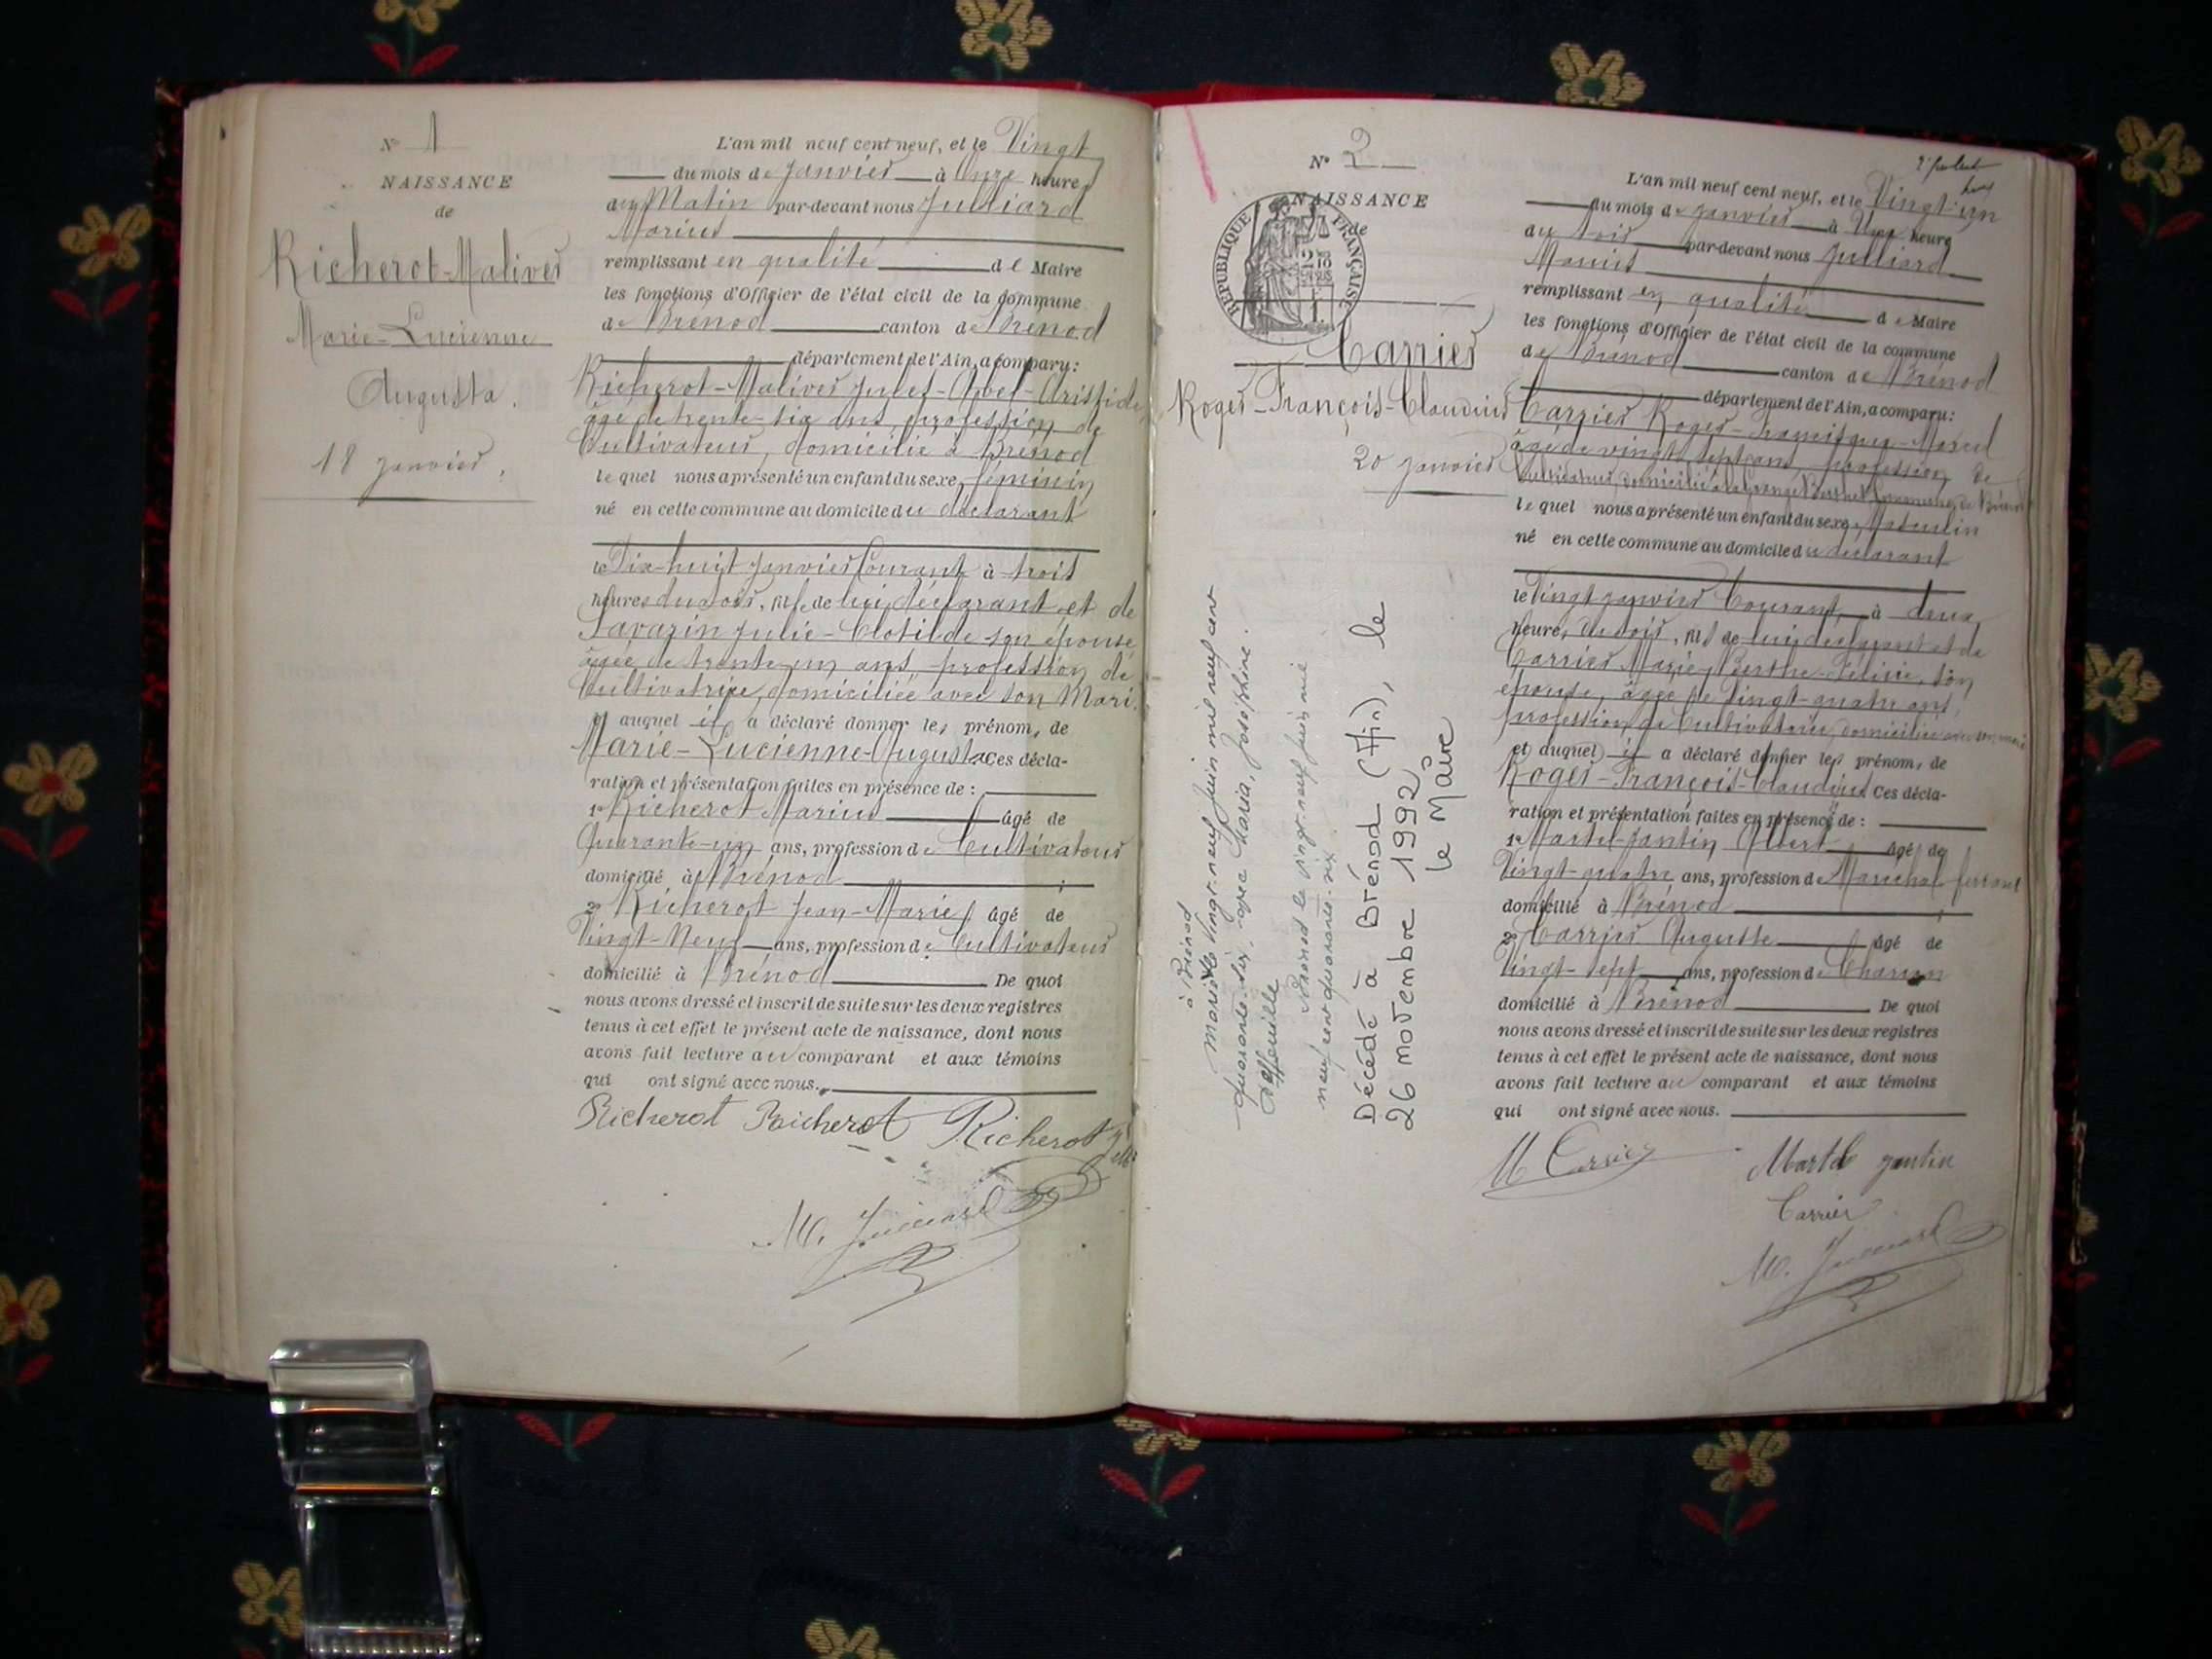 N° 1
NAISSANCE
de
Richerot-Malivert
Marie-Lucienne
Augusta.
18 janvier.
L'an mil neuf cent neuf, et le Vingt
du mois de janvier à Onze heures
du Matin par-devant nous Julliard
Marius
remplissant en qualité de Maire
les fonctions d'Officier de l'état civil de la commune
de Brénod canton de Brénod
département de l'Ain, a comparu:
Richerot-Malivert Jules-Abel-Aristide
âgé de trente-six ans, profession de
Cultivateur, domicilié à Brénod
lequel nous a présenté un enfant du sexe féminin
né en cette commune au domicile du déclarant
le Dix-huit janvier Courant à trois
heures du soir, fille de lui, déclarant et de
Savarin Julie-Clotilde son épouse
âgée de trente-un ans, profession de
Cultivatrice, domiciliée avec son Mari.
auquel il a déclaré donner les prénoms de
Marie-Lucienne-Augusta Ces décla-
ration et présentation faites en présence de :
1° Richerot Marius âgé de
Quarante-un ans, profession de Cultivateur
domicilié à Brénod ;
2° Richerot Jean-Marie âgé de
Vingt-Neuf ans, profession de Cultivateur
domicilié à Brénod De quoi
nous avons dressé et inscrit de suite sur les deux registres
tenus à cet effet le présent acte de naissance, dont nous
avons fait lecture au comparant et aux témoins
qui ont signé avec nous.
Richerot Richerot Richerot
M. Julliard
N° 2
NAISSANCE
de
REPUBLIQUE FRANÇAISE
Carrier
Roger-François-Claudius
20 janvier
à Brénod
Marié le vingt-neuf juin mil neuf cent
quarante-six, avec Maria, Joséphine.
Brénod le vingt-neuf juin mil
neuf cent quarante-six.
Décédé à Brénod (Ain), le
26 novembre 1992
Le Maire
L'an mil neuf cent neuf, et le Vingt-un
du mois de janvier à Une heure
du soir par-devant nous Julliard
Marius
remplissant en qualité de Maire
les fonctions d'Officier de l'état civil de la commune
de Brénod canton de Brénod
département de l'Ain, a comparu:
Carrier Roger-Francisque-Marcel
âgé de vingt-sept ans, profession de
Cultivateur, domicilié à la commune de Brénod
lequel nous a présenté un enfant du sexe Masculin
né en cette commune au domicile du déclarant
le Vingt janvier Courant, à deux
heures du soir, fils de lui déclarant et de
Carrier Marie-Berthe-Félicie, son
épouse, âgée de Vingt-quatre ans,
profession de Cultivatrice, domiciliée avec son mari
et auquel il a déclaré donner les prénoms de
Roger-François-Claudius Ces décla-
ration et présentation faites en présence de :
1° Martel-Jantin Albert âgé de
Vingt-quatre ans, profession de Maréchal-ferrant
domicilié à Brénod ;
2° Carrier Auguste âgé de
Vingt-Sept ans, profession de Charron
domicilié à Brénod De quoi
nous avons dressé et inscrit de suite sur les deux registres
tenus à cet effet le présent acte de naissance, dont nous
avons fait lecture au comparant et aux témoins
qui ont signé avec nous.
M Carrier Martel jantin
Carrier
M. Julliard